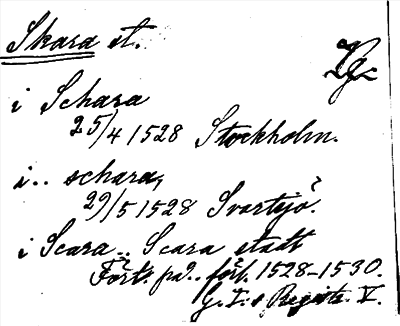 Skara st.
Vg.
i Schara
25/4 1528 Stockholm.
i.. schara,
29/5 1528 Svartsjö.
i Scara.. Scara stadt
Fört. på.. förl. 1528-1530.
G. I:s Registr. V.